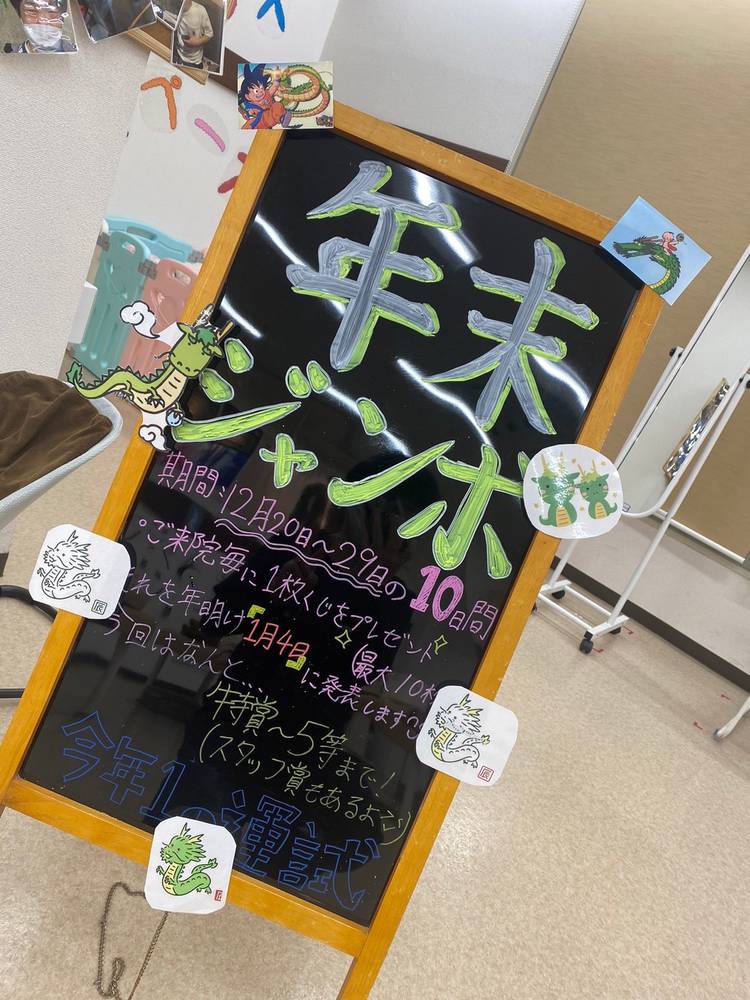 年末
ジャンボ
期間:12月20日〜29日の10日間
・ご来院毎に1枚くじをプレゼント
(最大10枚
れを年明け「1月4日」に発表します
今回はなんと…
特賞〜5等まで!
(スタッフ賞もあるよ♡)
今年1の運試
ペ
辰
辰
辰